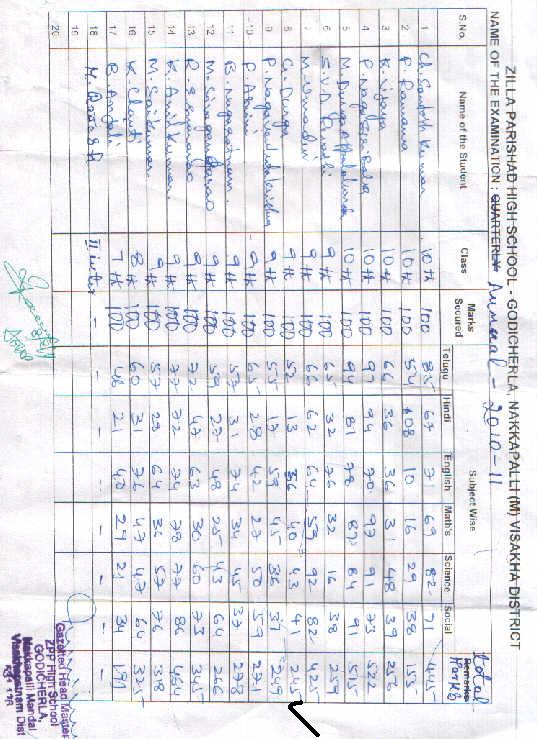 ZILLA PARISHAD HIGH SCHOOL - GODICHERLA, NAKKAPALLI (M) VISAKHA DISTRICT
NAME OF THE EXAMINATION : QUARTERLY Annual - 2010-11
S.No. Name of the Student Class Marks Secured Subject Wise Total Marks
Telugu Hindi English Math's Science Social Remarks
1 Kumar 10th 100 85 67 71 69 82 71 445
2 P. Ramana 10th 100 54 08 10 16 29 38 155
3 K. Vijaya 10th 100 66 36 36 31 48 39 256
4 10th 100 97 94 70 97 91 73 522
5 M. Durga 10th 100 94 81 78 87 84 91 515
6 S.V.D. 9th 100 65 32 76 32 16 38 259
7 M. 9th 100 66 62 64 59 92 82 425
8 Ch. Durga 9th 100 52 13 56 40 43 41 245
9 P. 9th 100 55 17 59 45 36 37 249
10 P. 9th 100 65 28 42 27 50 59 271
11 B. Nagaratnam 9th 100 57 31 74 34 45 37 278
12 M. 9th 100 59 27 48 25 43 64 266
13 R. 9th 100 72 47 63 30 60 73 345
14 K. Anil Kumar 9th 100 77 72 74 78 77 86 464
15 M. Sai Kumar 9th 100 57 29 64 36 57 76 318
16 K. 8th 100 60 31 76 47 47 64 325
17 B. Anjali 7th 100 48 21 40 27 21 34 191
18 M. II inter - - - - - - - -
19
20
Gazetted Head Master
ZPP High School
GODICHERLA,
Nakkapalli Mandal
Visakhapatnam Dist